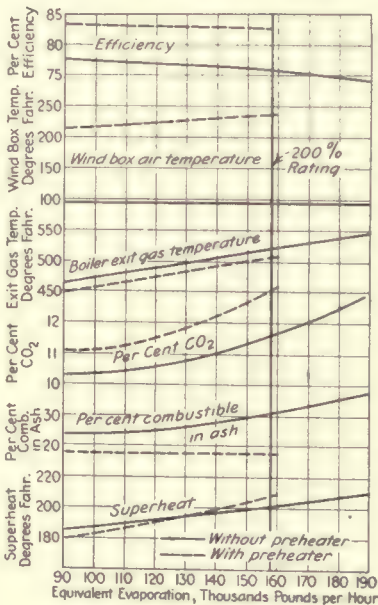 Per Cent
Efficiency
85
80
75
Efficiency
Wind Box Temp.
Degrees Fahr.
250
225
200
175
100
Wind box air temperature
200%
Rating
Exit Gas Temp.
Degrees Fahr.
550
500
450
Boiler exit gas temperature
Per Cent
CO2
12
11
10
Per Cent CO2
Per Cent
Comb.
in Ash
30
20
Per cent combustible
in ash
Superheat
Degrees Fahr.
220
200
180
Superheat
Without preheater
With preheater
90 100 110 120 130 140 150 160 170 180 190
Equivalent Evaporation, Thousands Pounds per Hour